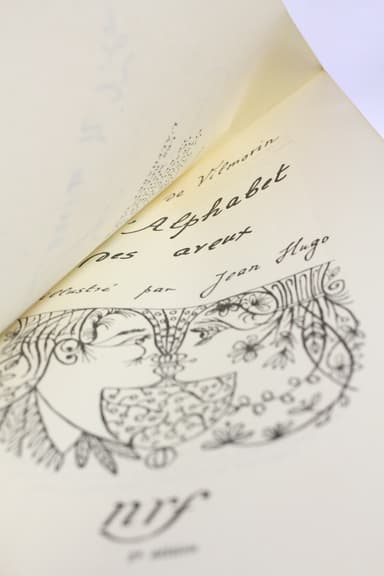 De Vilmorin
Alphabet
Des aveux
illustré par Jean Hugo
nrf